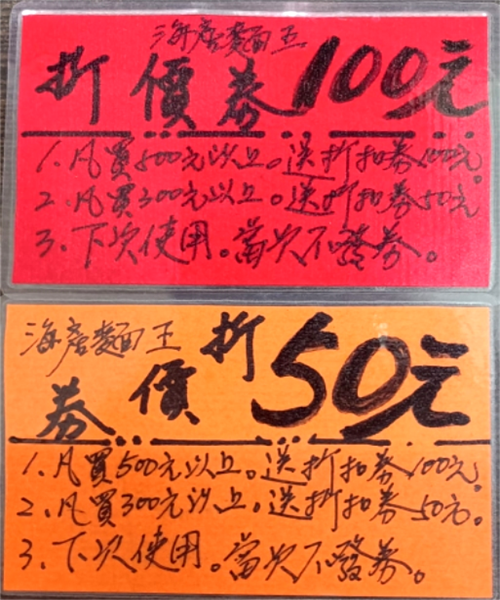 海產麵王
折價券100元
1.凡買500元以上。送折扣券100元。
2.凡買300元以上。送折扣券50元
3.下次使用。當次不發券。
海產麵王
折價券 50元
1.凡買500元以上。送折扣券100元。
2.凡買300元以上。送折扣券50元。
3.下次使用。當次不發券。